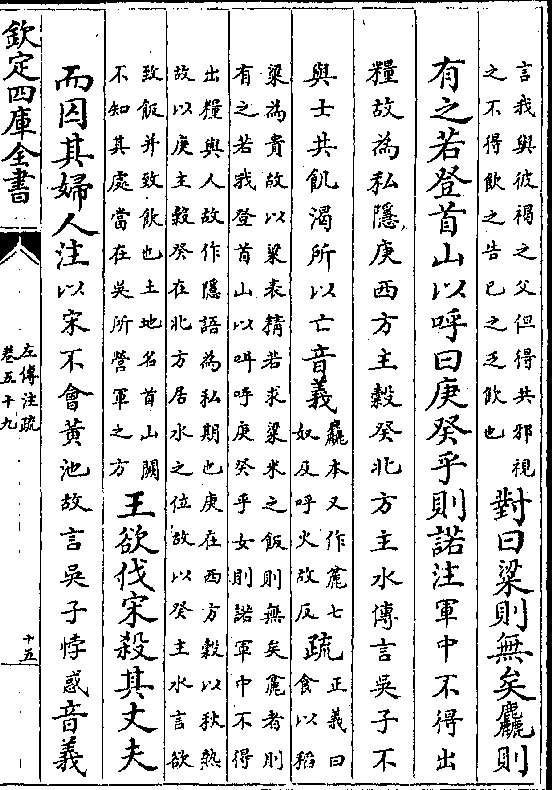 言我與彼褐之父但得共邪視
之不得飲之告已之乏飲也
對曰粱則無矣麤則
有之若登首山以呼曰庚癸乎則諾注軍中不得出
糧故為私隱庚西方主榖癸北方主水傳言吳子不
與士共飢渴所以亡音義
麤本又作麄七
奴反呼火故反
疏
正義曰
食以稻
粱為貴故以粱表精若求粱米之飯則無矣麄者則
有之若我登首山以呌呼庚癸乎女則諾軍中不得
出糧與人故作隱語為私期也庚在西方榖以秋熟
故以庚主榖癸在北方居水之位故以癸主水言欲
致飯并致飲也土地名首山闕
不知其處當在吳所營軍之方
王欲伐宋殺其丈夫
而囚其婦人注以宋不會黄池故言吳子悖惑音義
欽定四庫全書
左傳注疏
卷五十九
十五